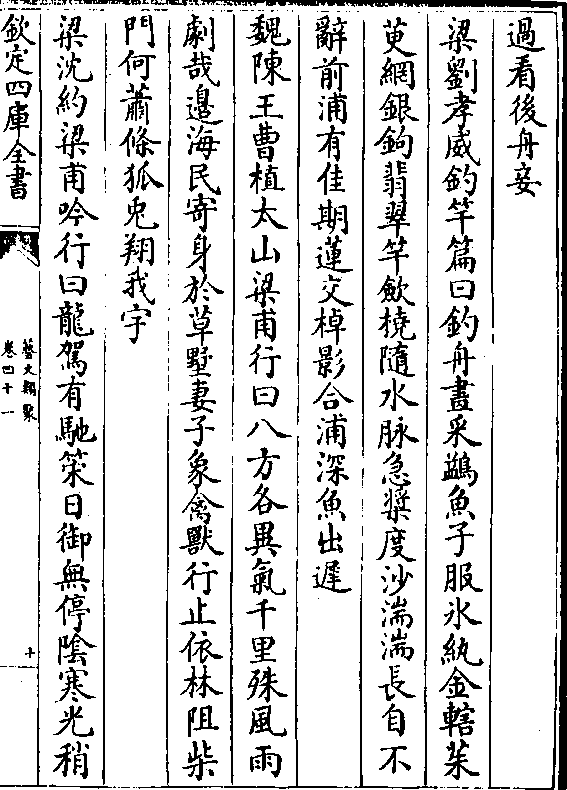 過看後舟妾
梁劉孝威釣竿篇曰釣舟畫采鷁魚子服氷紈金轄茱
萸網銀鉤翡翠竿歛橈隨水脉急槳度沙湍湍長自不
辭前浦有佳期蓮交棹影合浦深魚出遲
魏陳王曹植太山梁甫行曰八方各異氣千里殊風雨
劇哉邉海民寄身於草墅妻子象禽獸行止依林阻柴
門何蕭條狐兎翔我宇
梁沈約梁甫吟行曰龍駕有馳策日御無停隂寒光稍
欽定四庫全書
藝文類聚
卷四十一
十